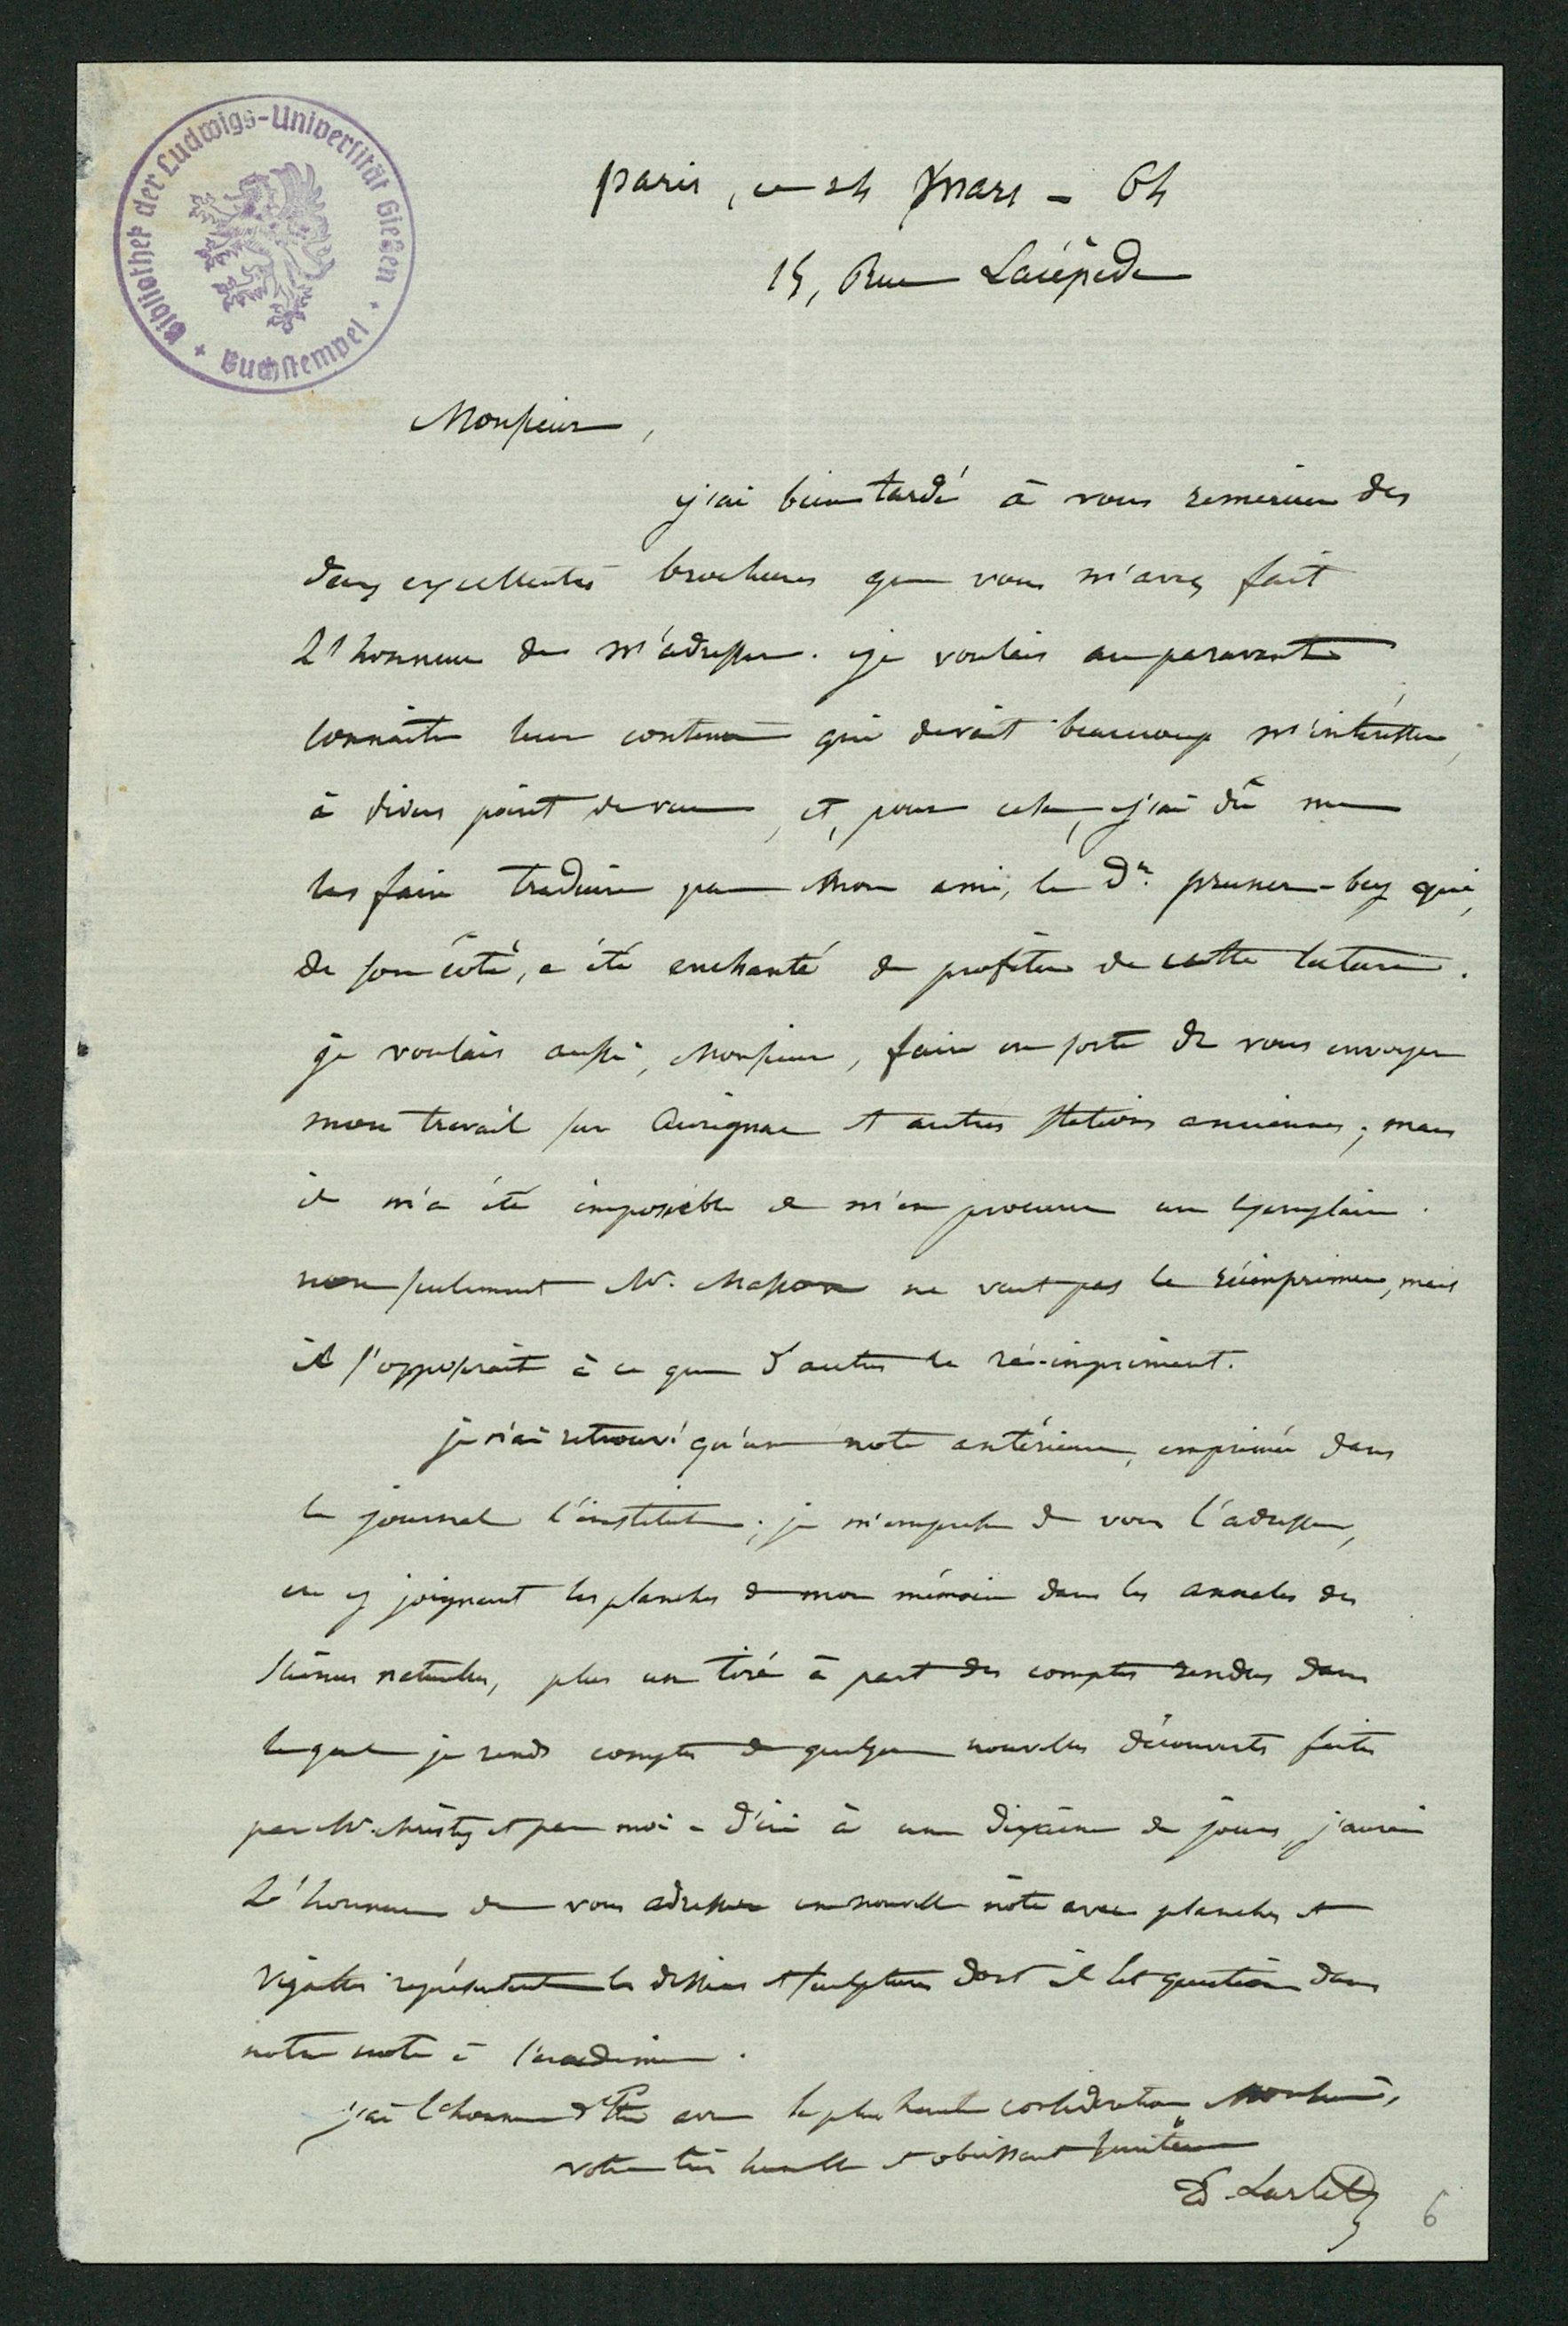 Bibliothek der Ludwigs-Universität Gießen
Buchstempel
paris, ce 24 Mars - 64
15, Rue Lacépède
Monsieur,
j'ai bien tardé à vous remercier des
deux excellentes brochures que vous m'avez fait
L'honneur de m'adresser. je voulais auparavant
connaître leur contenu qui devait beaucoup m'intéresser,
à divers point de vue, et, pour cela, j'ai dû me
les faire traduire par Mon ami, le Dr. pruner-bey qui,
de son côté, a été enchanté de profiter de cette lecture.
je voulais aussi, Monsieur, faire en sorte de vous envoyer
mon travail sur Aurignac et autres stations anciennes; mais
il m'a été impossible de m'en procurer un exemplaire.
non seulement Mr. Masson ne veut pas le réimprimer, mais
il s'opposerait à ce que d'autres le ré-impriment.
je n'ai retrouvé qu'une note antérieure, imprimée dans
le journal l'institut; je m'empresse de vous l'adresser,
en y joignant les planches de mon mémoire dans les annales des
sciences naturelles, plus un tiré à part des comptes rendus dans
lequel je rends compte de quelques nouvelles découvertes faites
par Mr. Christy et par moi - d'ici à une dixaine de jours, j'aurai
L'honneur de vous adresser une nouvelle note avec planches et
vignettes représentant les dessins et sculptures dont il est question dans
notre note à l'académie.
j'ai l'honneur d'être avec la plus haute considération Monsieur,
votre très humble et obéissant serviteur
Ed. Lartet
6